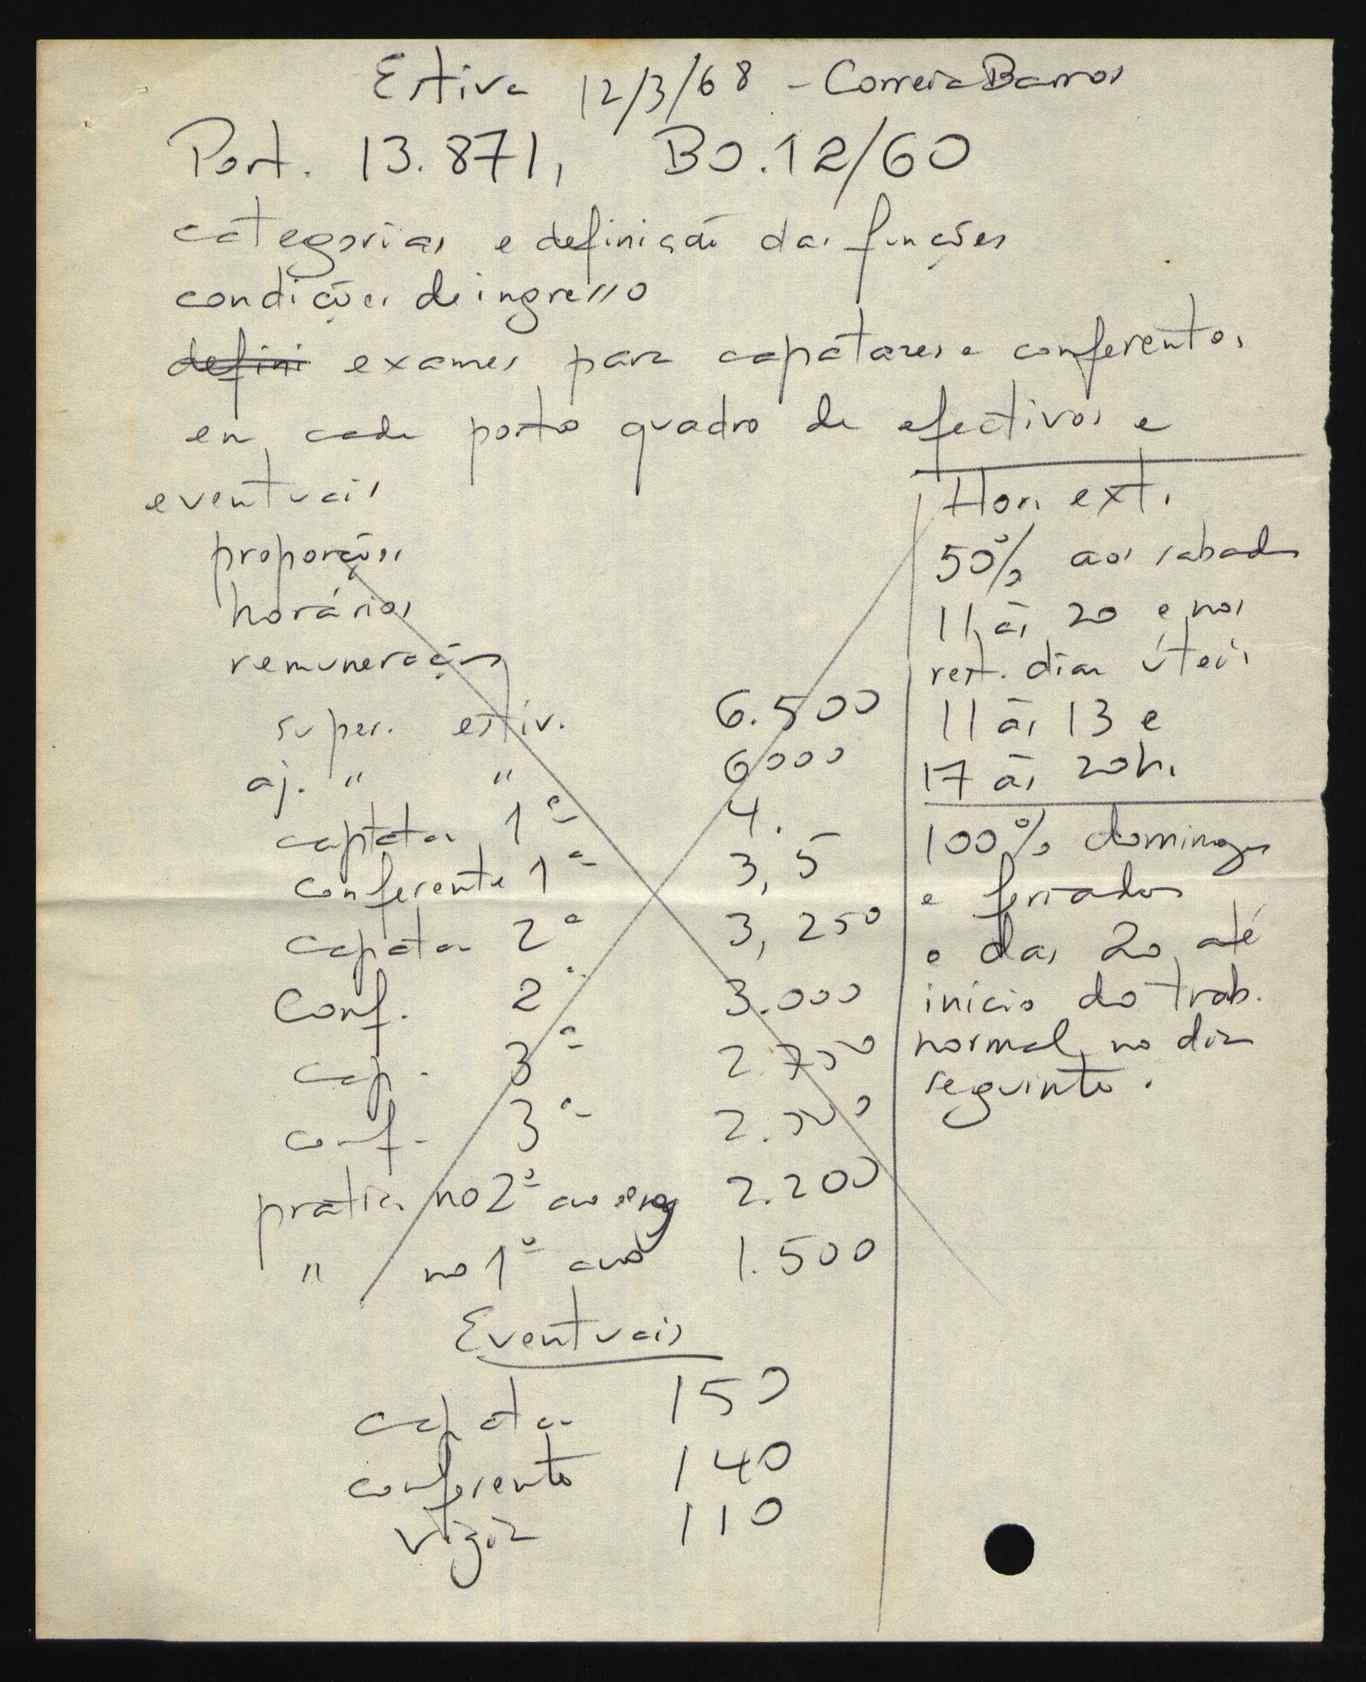 Estiva 12/3/68 - Correia Barros
Port. 13.871, BO.12/60
categorias e definição das funções
condições de ingresso
defini exames para capatazes e conferentes
em cada porto quadro de efectivos e
eventuais
proporções
horários
remunerações
super. estiv. 6.500
aj. " " 6000
captataz 1ª 4.
conferente 1ª 3,5
capataz 2ª 3,250
Conf. 2ª 3.000
cap. 3ª 2.750
conf. 3ª 2.500
pratic. no 2º ano 2.200
" no 1º ano 1.500
Eventuais
capataz 150
conferente 140
vigia 110
Hor. ext.
50% aos sabados
11 às 20 e nos
rest. dias úteis
11 às 13 e
17 às 20h.
100% domingos
e feriados
e das 20 até
inicio do trab.
normal no dia
seguinte.